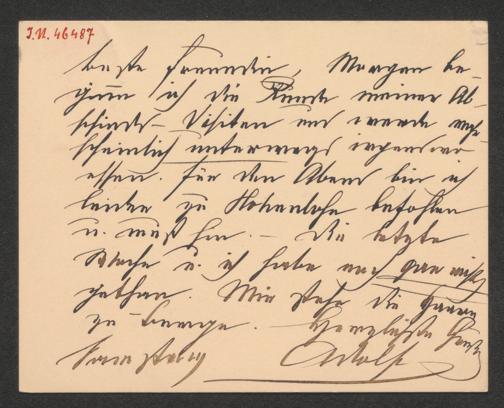 I.N. 46487
beste Freundin, Morgen be-
ginne ich die Runde meiner Ab-
schieds-Visiten und werde wahr-
scheinlich unterwegs irgendwo
essen. Für den Abend bin ich
leider zu Hohenlohe befohlen
u. muß hin. – Die letzte
Woche u. ich habe noch gar nichts
gethan. Mir stehn die Haare
zu berge. – Herzlichste Grüße
Adolf